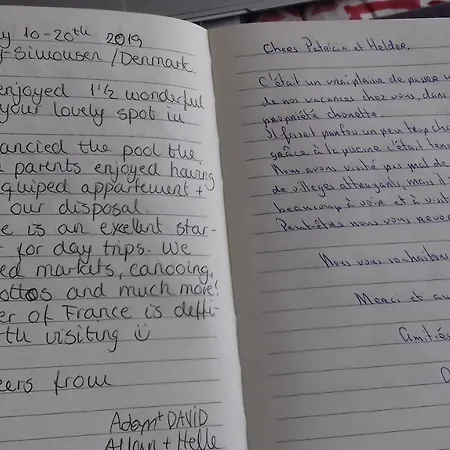 y 10-20th 2019
y-Simonsen / Denmark
enjoyed 1½ wonderful
your lovely spot in
ancied the pool the
parents enjoyed having
equiped appartement +
our disposal.
e is an exelent star-
for day trips. We
ed markets, canooing,
ottos and much more!
er of France is deffi-
th visiting ü
eers from
Adam + DAVID
Allan + Helle
Chers Patricia et Helder,
C'était un vrai plaisir de passer u
de nos vacances chez vous, dans
propriété chouette.
Il faisait parfois un peu trop cha
grâce à la piscine c'était ten
Nous avons visité pas mal de
de villages attrayants, mais il
beaucoup à voir et à visit
Peut-être nous vous rever
Nous vous souhaitons
Merci et au
Amitiés